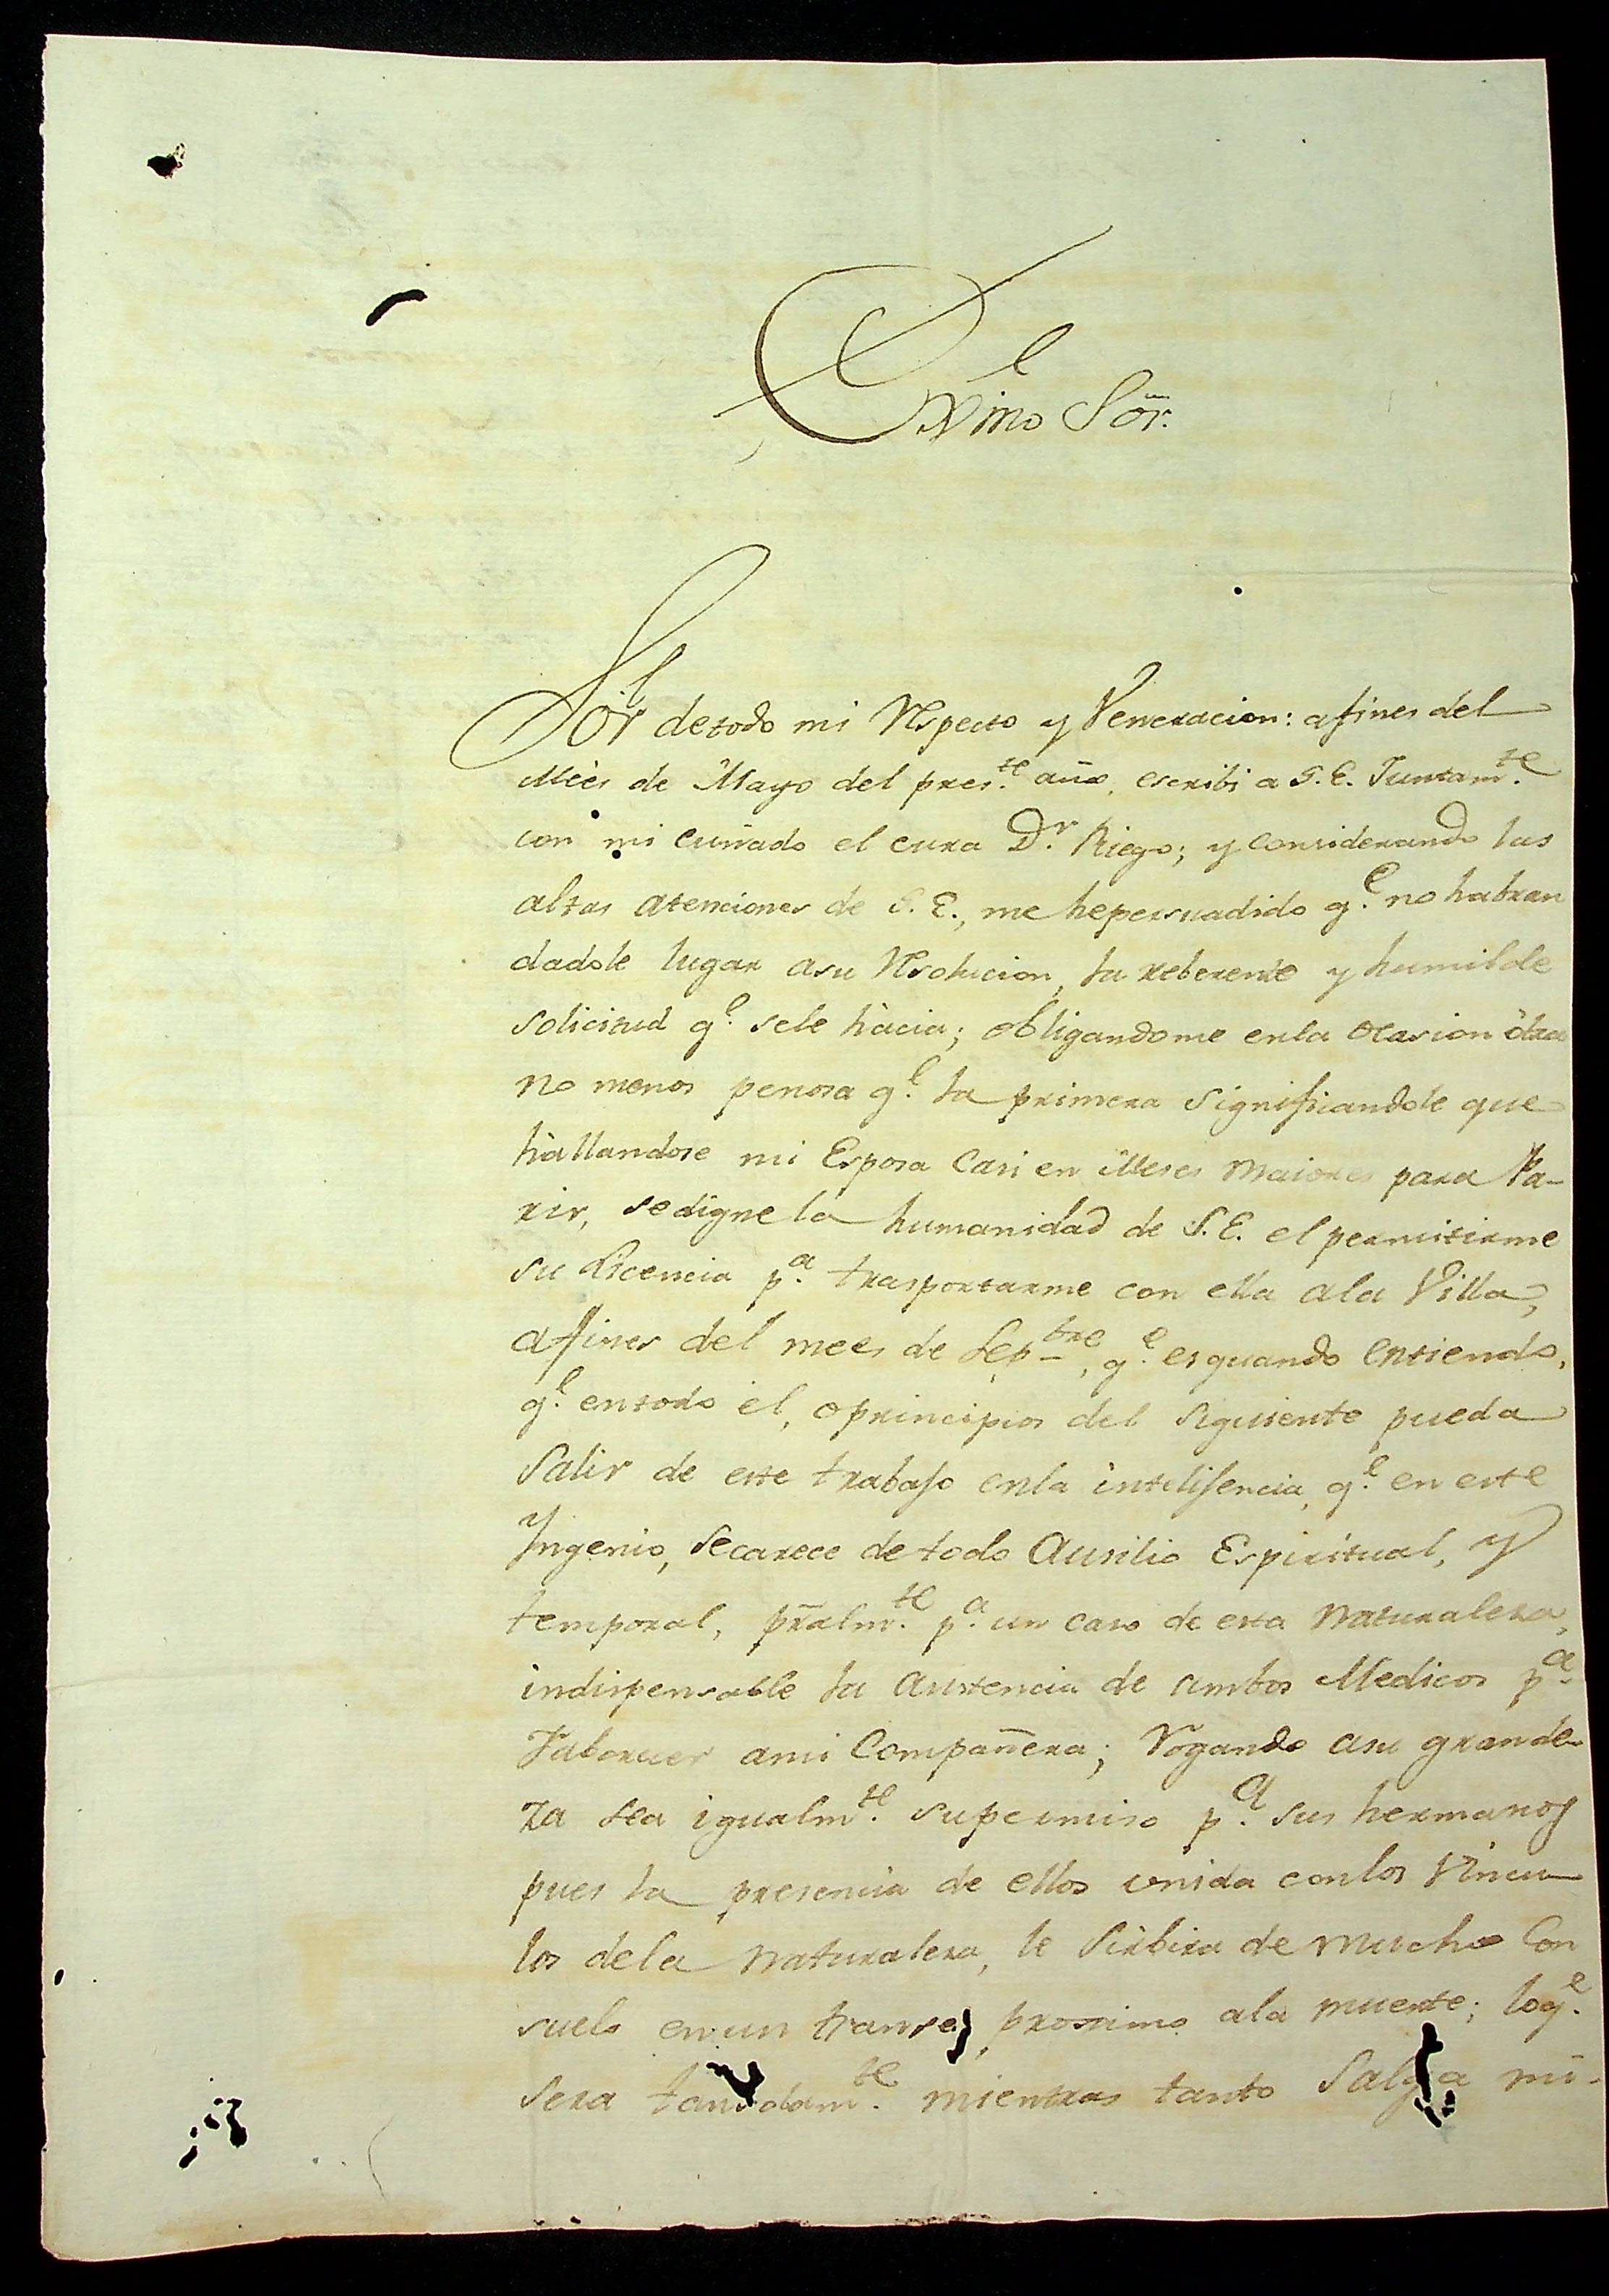 Exmo Sõr.
Sõr de todo mi Respecto y Veneracion: a fines del
Mès de Mayo del pres.te año, escribi a S.E. Juntam.te
con mi cuñado el cura D.r Riego; y considerando las
altas atenciones de S.E., me hepersuadido q.e no habran
dadole lugar asu Resolucion, la reberente y humilde
solicitud q.e sele hàcia; obligandome enla ocasion òtra
no menos penosa q.e la primera significandole que
hàllandose mi Esposa Casi en Meses maiores para Pa-
rir, sedigne la humanidad de S.E. el permitirme
su Licencia p.a trasportarme con ella ala Villa,
a fines del mees de Sep-bre, q.e es quando entiendo,
q.e entodo èl, oprincipios del siguiente pueda
Salir de este trabajo enla intelijencia, q.e en este
Yngenio, secarece de todo Ausilio Espiritual, y
temporal, pr̃alm.te p.a un caso de esta naturaleza,
indispensable la asistencia de ambos Medicos p.a
faborecer ami Compañera; Rogando asu grande-
za sea igualm.te supermiso p.a sus hermanos
pues la presencia de ellos unida conlos Vincu-
los dela naturaleza, le Sirbira de mucho Con
suelo en un transe, proximo ala muerte; loq.e
sera tan solam.te mientras tanto Salga mi-